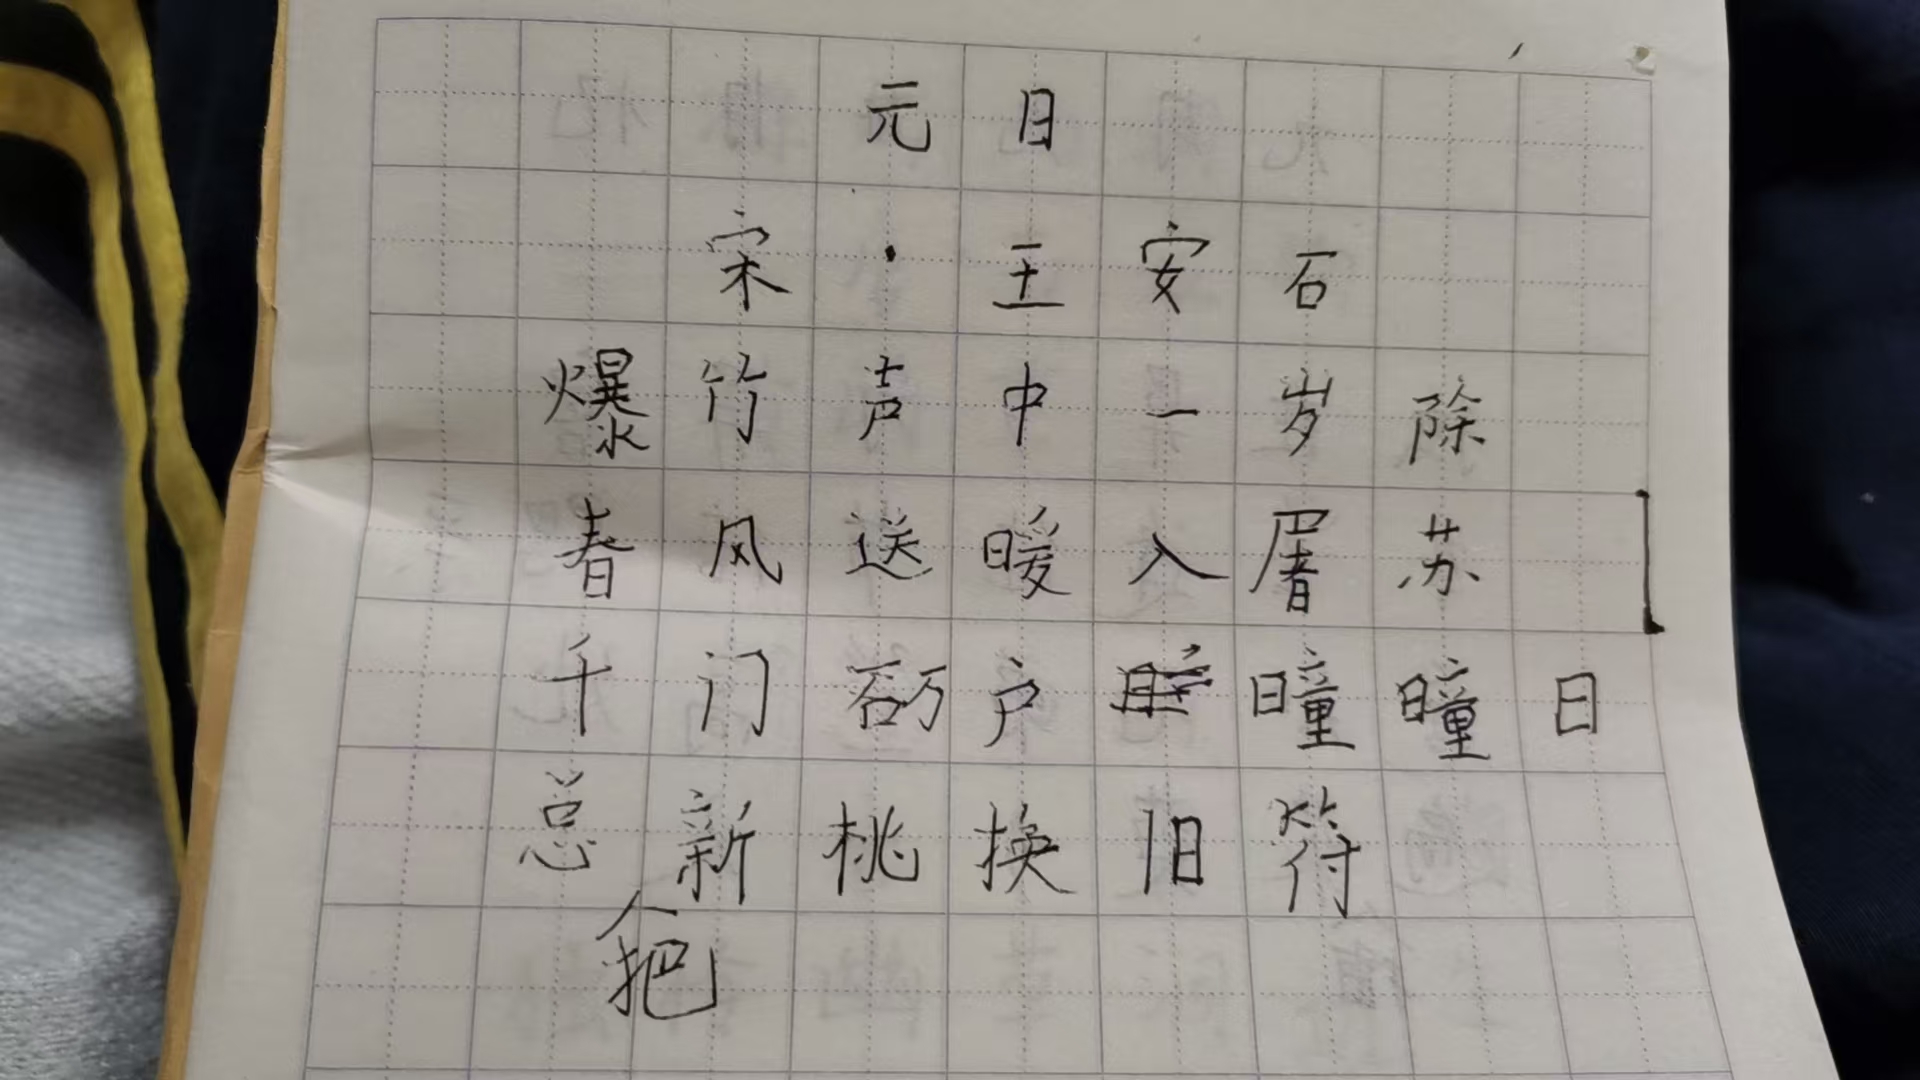 元日
宋·王安石
爆竹声中一岁除
春风送暖入屠苏
千门万户曈曈日
总把新桃换旧符